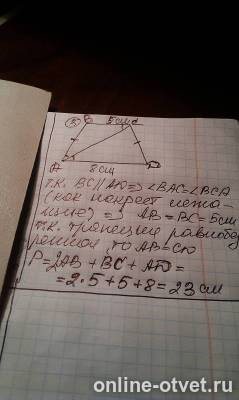 ③ B 5см C
A 8см D
т.к. BC||AD => ∠BAC=∠BCA
(как накрест лежа-
щие) => AB=BC=5см
т.к. трапеция равнобед
ренная, то AB=CD
P=2AB+BC+AD=
=2·5+5+8=23см
online-otvet.ru